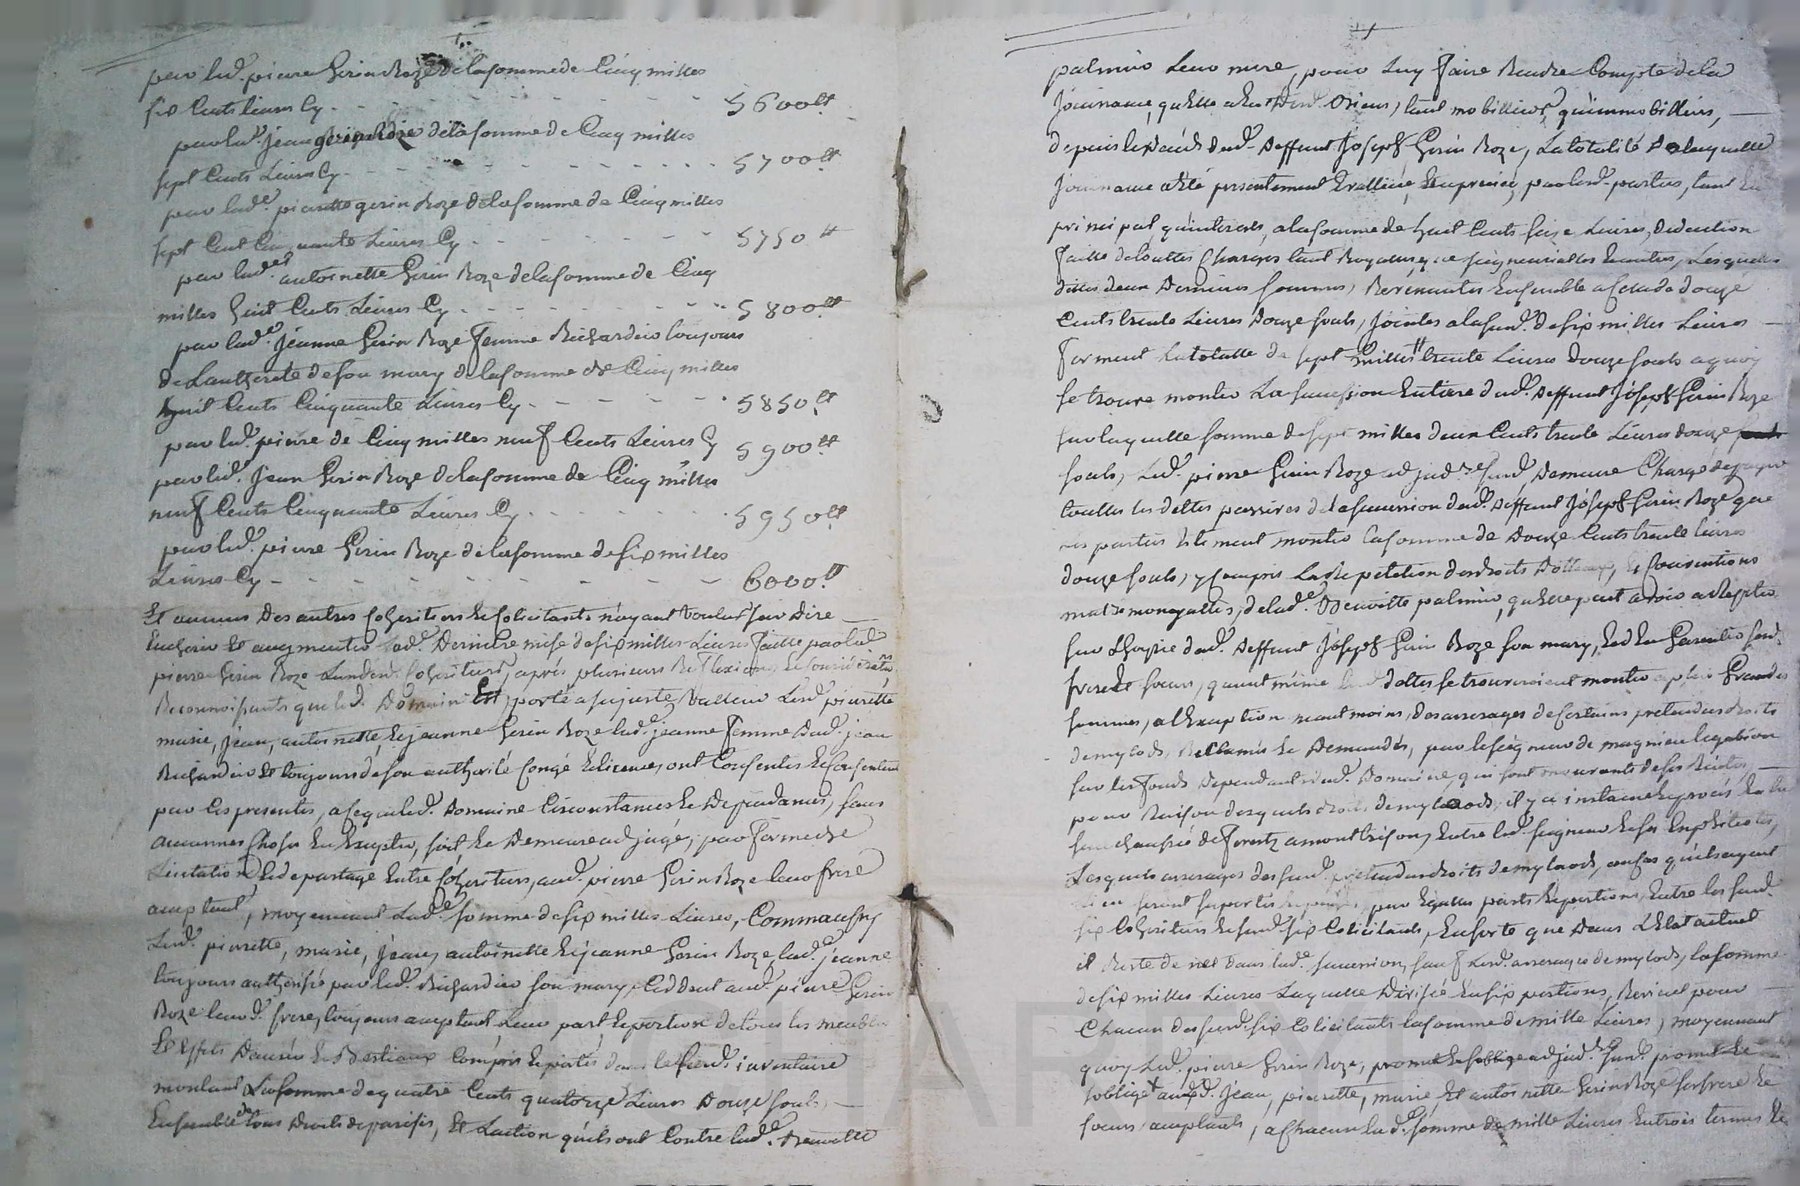 par lud. pierre Gerin Roze de la somme de Cinq milles
six Cents livres Cy - - - - - - - - 5600lt
par lud. Jean gerin Roze de la somme de Cinq milles
sept Cents Livres Cy - - - - - - - 5700lt
par lad.e pierette gerin Roze de la somme de Cinq milles
sept Cent Cinquante Livres Cy - - - - - - 5750lt
par lad.e antoinette Gerin Roze de la somme de Cinq
milles huit Cents Livres Cy - - - - - - 5800lt
par lad.e Jeanne Gerin Roze femme Richardier toujours
de Lautherité de son mary de la somme de Cinq milles
huit Cents Cinquante Livres Cy - - - - - 5850lt
par lud. pierre de Cinq milles neuf Cents Livres Cy 5900lt
par lud. Jean Gerin Roze de la somme de Cinq milles
neuf Cents Cinquante Livres Cy - - - - - 5950lt
par lud. pierre Gerin Roze de la somme de six milles
Livres Cy - - - - - - - - 6000lt
Et aucuns des autres Coheritiers & Colicitants n'ayant voulus sur dire
Encherir et augmenter lad.e Derniere mise de six milles Livres faitte par lud.
pierre Gerin Roze Lun desd. Coheritiers, après plusieurs Reflexions &
Reconnoissants que led. Domaine Est porté a sa juste Valleur Lesd. pierette
marie, Jean, antoinette, & jeanne Gerin Roze lad.e jeanne femme dud. jean
Richardier & toujours de son authorité Congé & licence, ont Consentis & Consentent
par Ces presentes, a Ce que led. Domaine Circonstances & Dependances, sans
aucunes Choses En Excepter, soit & Demeure adjugé, par forme de
Licitation, & de partage Entre Coheritiers, aud. pierre Gerin Roze leur frere
acceptant, moyennant Lad.e somme de six milles Livres, Comme aussy
Lesd. pierette, marie, Jean, antoinette & jeanne Gerin Roze, lad.e jeanne
toujours authorisée par led. Richardier son mary, Ceddent aud. pierre Gerin
Roze leurd. frere, toujours acceptant Leur part & portion de tous les meubles
& Effets Danrées & Bestiaux Compris & portés dans le susd. inventaire
montant La somme de quatre Cents quatorze Livres Douze souls,
Ensemble de tous Droits & Laction qu'ils ont Contre lad.e Denoitte
palmier Leur mere, pour Luy faire Rendre Compte de la
Jouissance, qu'Elle a Eu Desd. Biens, tant mobilliers, qu'immobilliers,
depuis le Decés dud. Deffunt Joseph Gerin Roze, La totalité De laquelle
Jouissance a Eté presentement Evalluée, & apreciée, par lesd. parties, tant En
principal, qu'interets, a la somme de huit Cents seize Livres, deduction
faitte de touttes Charges tant Royalles, que seigneurialles & autres, Lesquelles
dittes deux Dernieres sommes, Revenantes Ensemble a Celle de douze
Cents trente Livres Douze souls, Jointes a la susd. de six milles Livres
forment La totalle de sept milles trente Livres Douze souls a quoy
se trouve monter La succession Entiere dud. Deffunt Joseph Gerin Roze
sur laquelle somme de sept milles deux Cents trente Livres douze
souls, Led. pierre Gerin Roze adjud.re susd. Demeure Chargé de payer
touttes les dettes passives de la succession dud. Deffunt Joseph Gerin Roze que
les parties Estiment monter la somme de Douze Cents trente livres
douze souls, y Compris La Repetition des droits Dottaux, & Conventions
matrimonyalles, de lad.e Denoitte palmier, qu'Elle peut avoir a Repeter
sur Lhoyrie dud. Deffunt Joseph Gerin Roze son mary, & d'En Garentir sesd.
freres & soeurs, quand même lesd. dettes se trouveroient monter a plus Grandes
sommes, a l'Exception neantmoins, des arrerages de Certains pretendus droits
de mylods, Reclamés & Demandés, par le seigneur de magnieu
sur les fonds dependants dud. Domaine, qui sont mouvants de ses Rentes,
pour Raison desquels droits de mylaods, il y a instance & procés En la
senechaussée de forestz a montbrison, Entre led. seigneur & ses Emphiteotes,
Lesquels arrerages desd. pretendus droits de mylaods, au Cas qu'ils soyent
seront suportés & payés, par Egalles parts & portions, Entre les susd.
six Coheritiers & susd. six Colicitants, En sorte que Dans L'Etat actuel
il Reste de net dans lad.e succession, sauf Lesd. arrerages de mylods, la somme
de six milles Livres Laquelle Divisée En six portions, Revient pour
Chacun des susd. six Colicitants la somme de mille Livres, moyennant
quoy Led. pierre Gerin Roze, promet & s'oblige
s'obliger aux d. Jean, pierette, marie et antoinette Gerin Roze ses frere &
soeurs acceptants, a Chacun lad.e somme de mille Livres En trois termes &